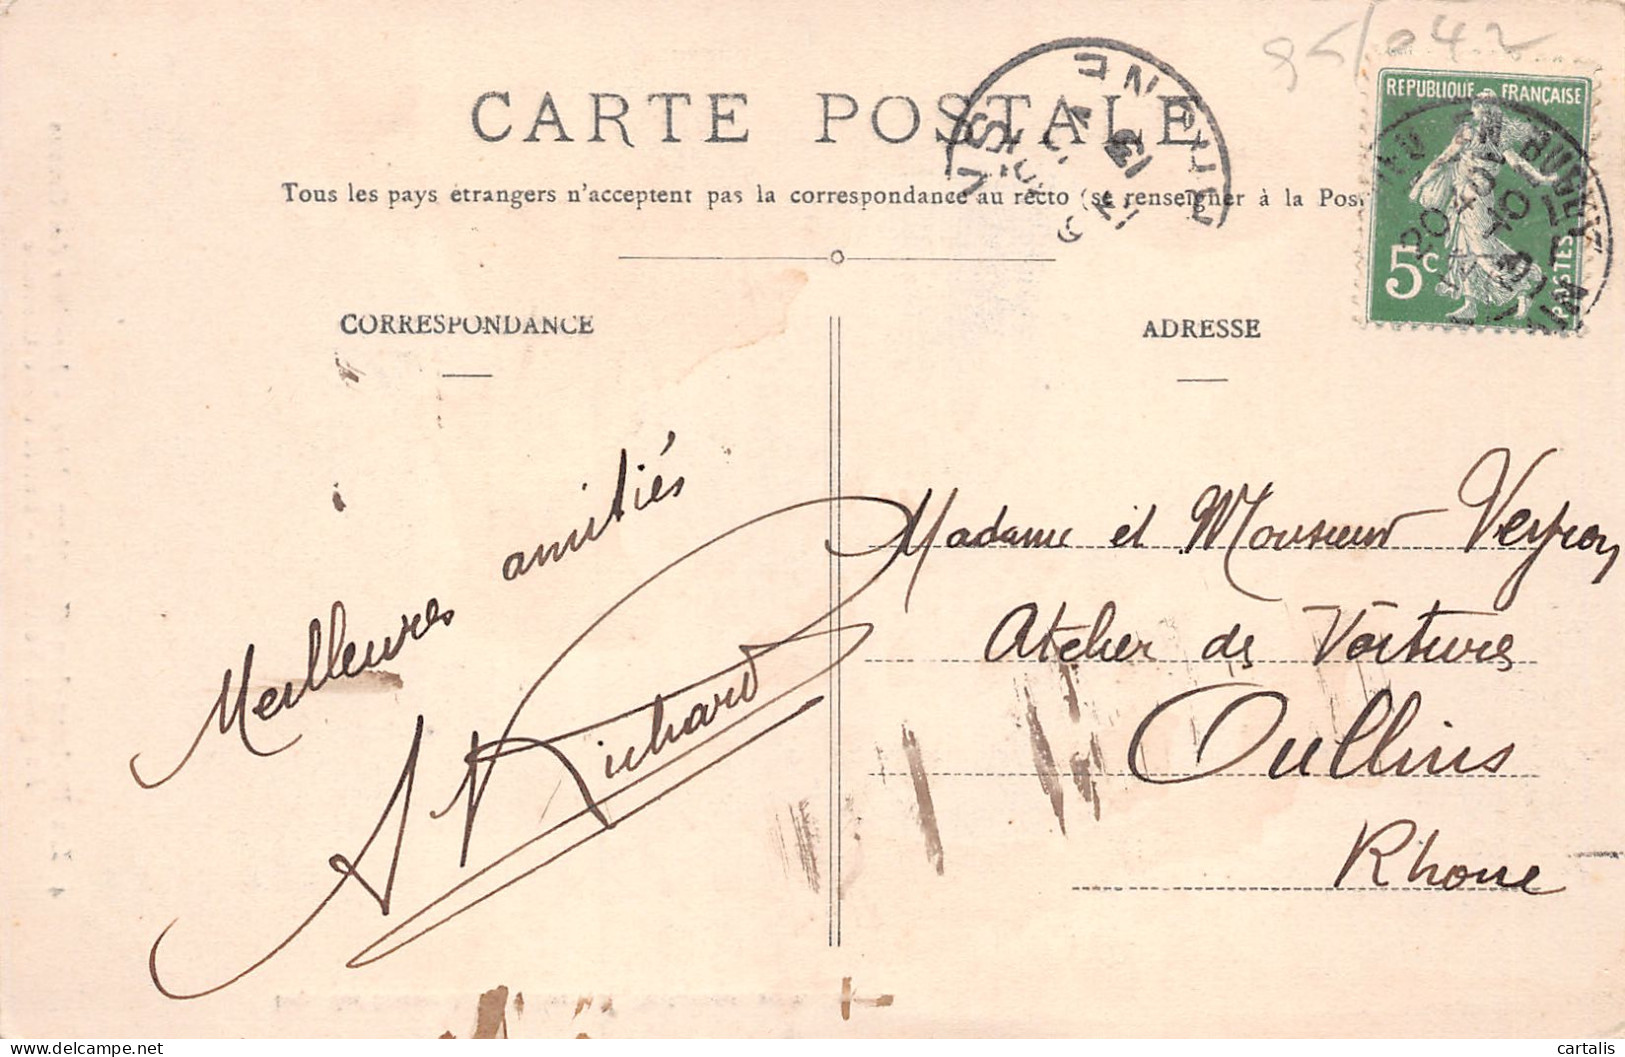 95/042
CARTE POSTALE
Tous les pays étrangers n'acceptent pas la correspondance au recto (se renseigner à la Post
REPUBLIQUE FRANÇAISE
5c
POSTES
EN BUGEY
CORRESPONDANCE
ADRESSE
Meilleures amitiés
Richard
Madame et Monsieur Veyron
Atelier de Voitures
Oullins
Rhone
cartalis
delcampe.net